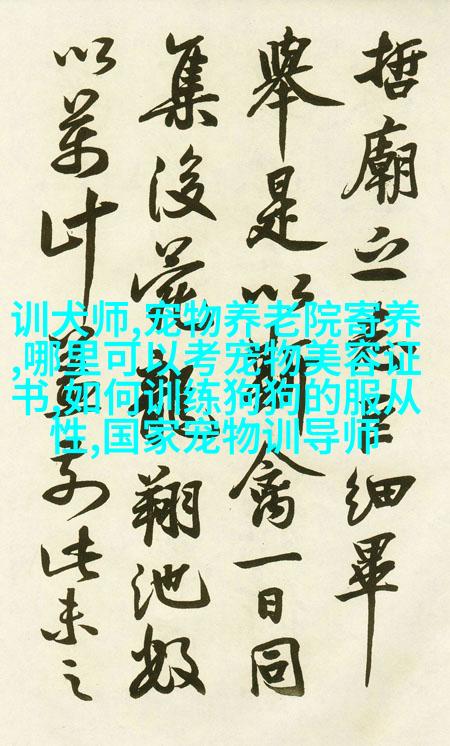 哲廟之細畢
舉是以禽一日同
集後苑翔池數
以萬計此未之
训犬师,宠物养老院寄养
,哪里可以考宠物美容证
书,如何训练狗狗的服从
性,国家宠物训导师